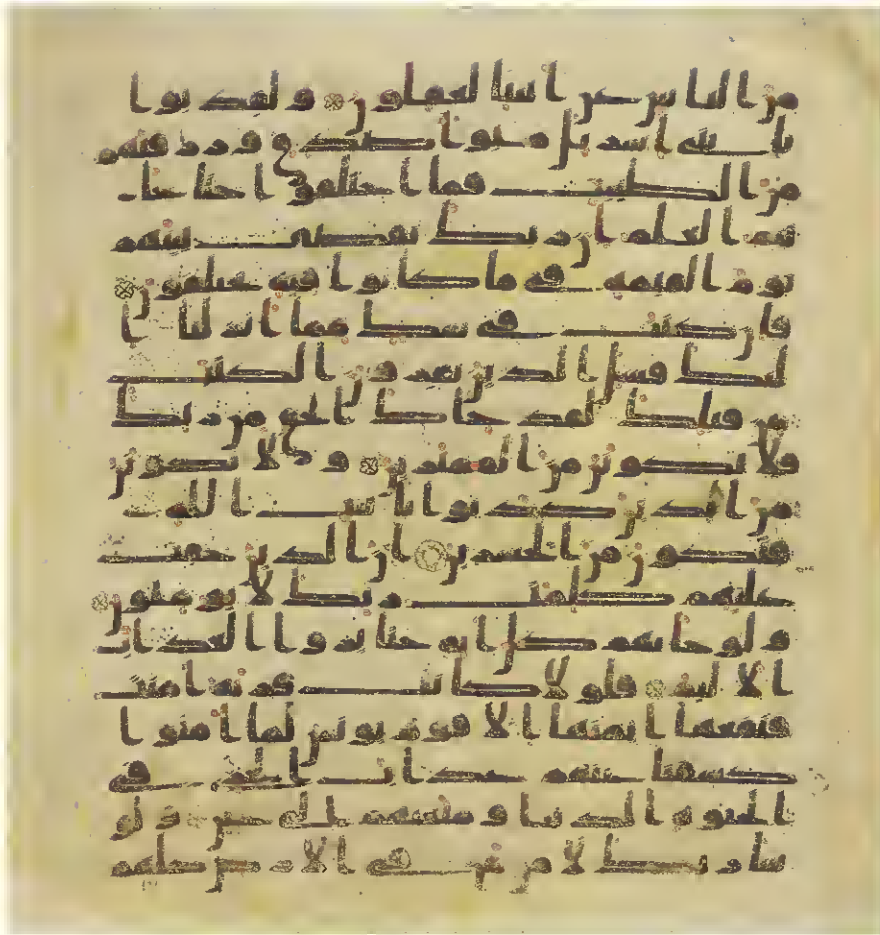 من الناس عن ايتنا لغفلون ولقد بوا
نا بني اسريل مبوا صدق ورزقنهم
من الطيبت فما اختلفوا حتى جا
هم العلم ان ربك يقضي بينهم
يوم القيمة فيما كانوا فيه يختلفون
فان كنت في شك مما انزلنا ا
ليك فسل الذين يقرون الكتب
من قبلك لقد جاك الحق من ربك
فلا تكونن من الممترين ولا تكونن
من الذين كذبوا بايت الله
فتكون من الخسرين ان الذين حقت
عليهم كلمت ربك لا يومنون
ولو جاتهم كل اية حتى يروا العذاب
الاليم فلولا كانت قرية امنت
فنفعها ايمنها الا قوم يونس لما امنوا
كشفنا عنهم عذاب الخزي في
الحيوة الدنيا ومتعنهم الى حين ولو
شا ربك لامن من في الارض كلهم